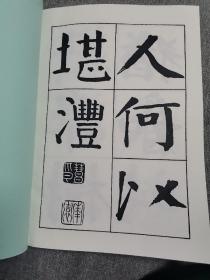 人何以
堪澧